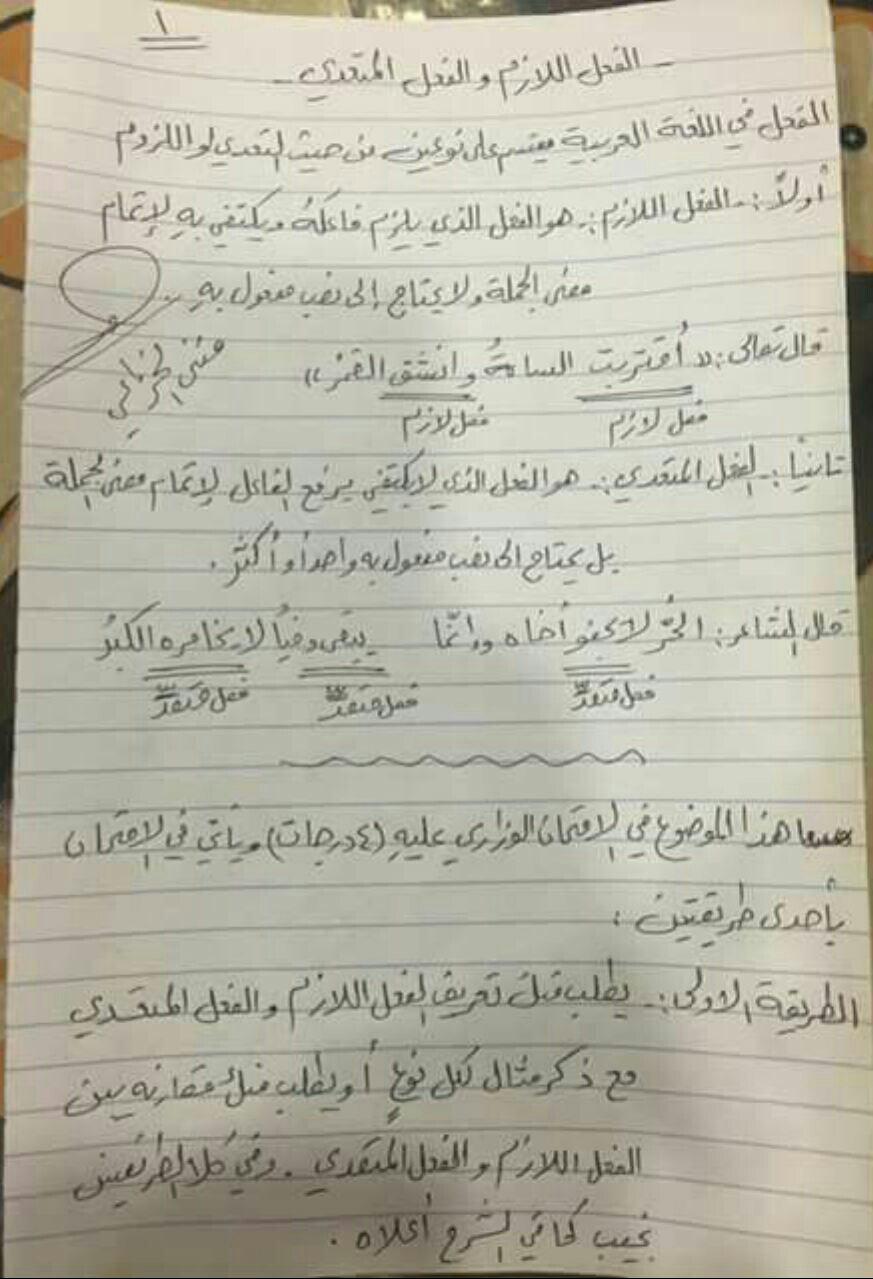 ١
- الفعل اللازم و الفعل المتعدي -
الفعل في اللغة العربية يقسم على نوعين من حيث التعدي او اللزوم
أولاً :- الفعل اللازم :- هو الفعل الذي يلزم فاعلهُ ويكتفي بهِ لإتمام
معنى الجملة ولا يحتاج إلى نصب مفعول بهِ
قال تعالى : « أقتربت الساعةُ وانشق القمرُ »
فعل لازم فعل لازم
ثانياً :- الفعل المتعدي :- هو الفعل الذي لا يكتفي برفع الفاعل لإتمام معنى الجملة
بل يحتاج الى نصب مفعول به واحداً أو أكثر .
قال الشاعر : الحُرّ لا يجفو أخاه وإنّما يبقى وفياً لا يخامره الكبرُ
فعل متعدٍّ فعل متعدٍّ فعل متعدٍّ
هذا الموضوع في الامتحان الوزاري عليهِ (٤ درجات) ويأتي في الامتحان
بأحدى طريقتين :
الطريقة الاولى :- يطلب منك تعريف الفعل اللازم و الفعل المتعدي
مع ذكر مثال لكل نوعٍ أو يطلب منك مقارنه بين
الفعل اللازم و الفعل المتعدي . وفي كلا الطريقتين
نجيب كما في الشرح أعلاه .